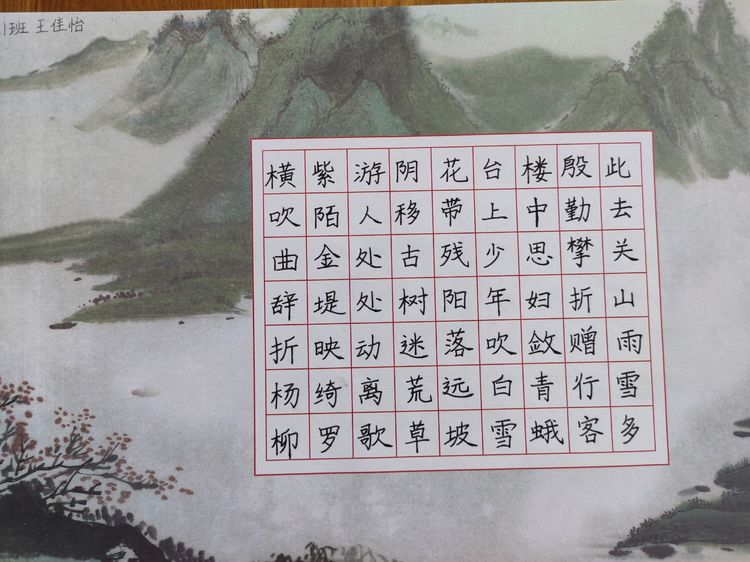 1班 王佳怡
横吹曲辞折杨柳
紫陌金堤映绮罗
游人处处动离歌
阴移古树迷荒草
花带残阳落远坡
台上少年吹白雪
楼中思妇敛青蛾
殷勤攀折赠行客
此去关山雨雪多